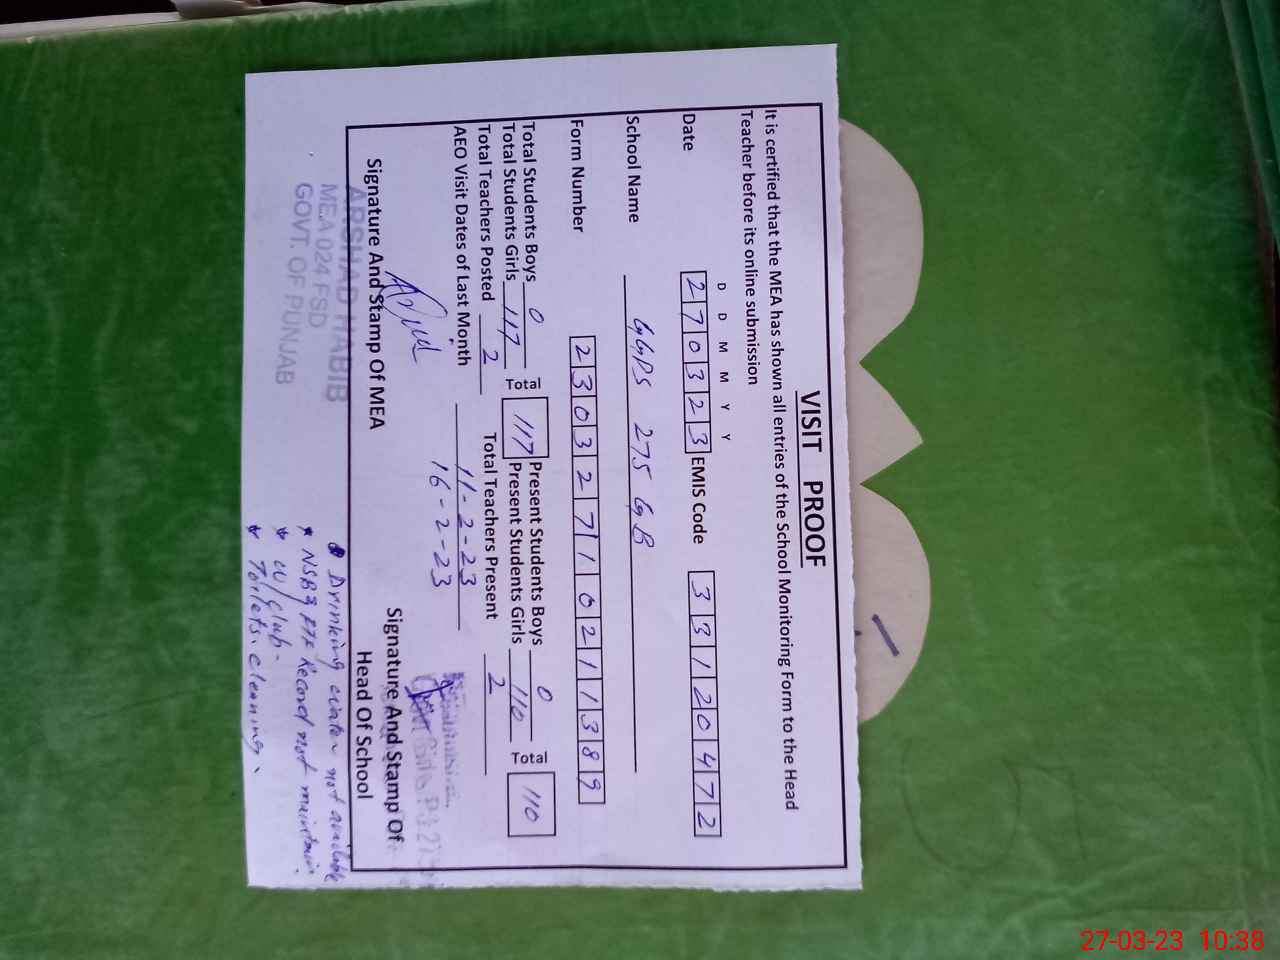 VISIT PROOF
It is certified that the MEA has shown all entries of the School Monitoring Form to the Head
Teacher before its online submission
D D M M Y Y
Date 2 7 0 3 2 3 EMIS Code 3 3 1 2 0 4 7 2
School Name GGPS 275 GB
Form Number 2 3 0 3 2 7 1 0 2 1 1 3 8 9
Total Students Boys 0 Total 117 Present Students Boys 0 Total 110
Total Students Girls 117 Present Students Girls 110
Total Teachers Posted 2 Total Teachers Present 2
AEO Visit Dates of Last Month 11-2-23
16-2-23
Signature And Stamp Of MEA
Signature And Stamp Of
Head Of School
ARSHAD HABIB
MEA 024 FSD
GOVT. OF PUNJAB
Drinking water not available
* NSB & Record not
* W/ Club.
* Toilets cleaning.
27-03-23 10:38